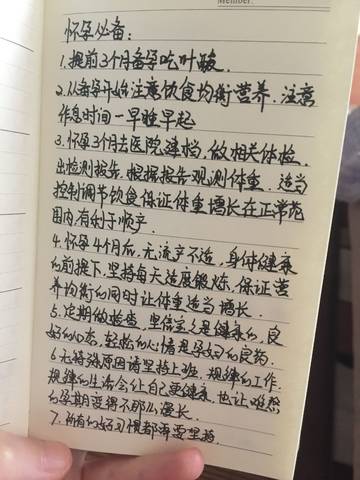 Member:
怀孕必备:
1.提前3个月备孕吃叶酸.
2.从备孕开始注意饮食均衡营养.注意
作息时间一早睡早起
3.怀孕3个月去医院建档,做相关体检.
出检测报告.根据报告观测体重.适当
控制调节饮食保证体重增长在正常范
围内.有利于顺产.
4.怀孕4个月后,无流产不适,身体健康
的前提下,坚持每天适度锻炼,保证营
养均衡的同时让体重适当增长.
5.定期做检查,坚信宝宝是健康的,良
好的心态,轻松的心情是孕妇的良药.
6.无特殊原因请坚持上班,规律的工作.
规律的生活会让自己更健康,也让难熬
的孕期变得不那么漫长.
7.所有的好习惯都需要坚持.